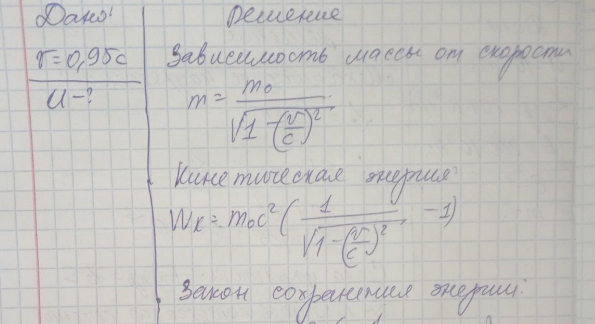 Дано:
v=0,95c
U-?
Решение
Зависимость массы от скорости
m = m₀ / √(1-(v/c)²)
Кинетическая энергия
Wк = m₀c² (1 / √(1-(v/c)²) -1)
Закон сохранения энергии: